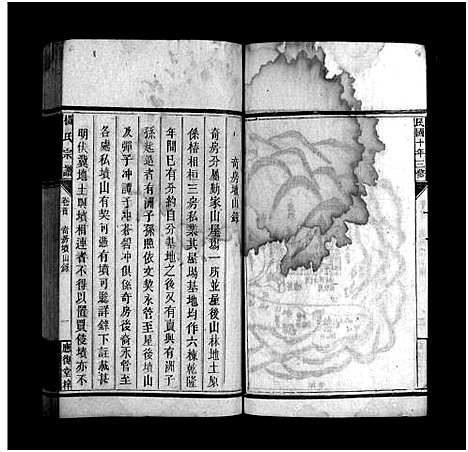 民國十年三修
奇房墳山錄
奇房分屬勳家山屋場一所並屋後山林地土原
係椿相桓三房私業其屋場基地均作六棟乾隆
年間已有分約自分基地之後又有賣與有洲子
孫起造者有洲子孫照依文契永管至屋後墳山
及彈子冲譚子冲蒼碧冲俱係奇房後裔永管至
各處私墳山有墳可憑有墳可點詳錄下註載甚
明伏冀墳土與墳相連者不得以置買侵墳亦不
楊氏宗譜
卷首
奇房墳山錄
一
應復堂梓